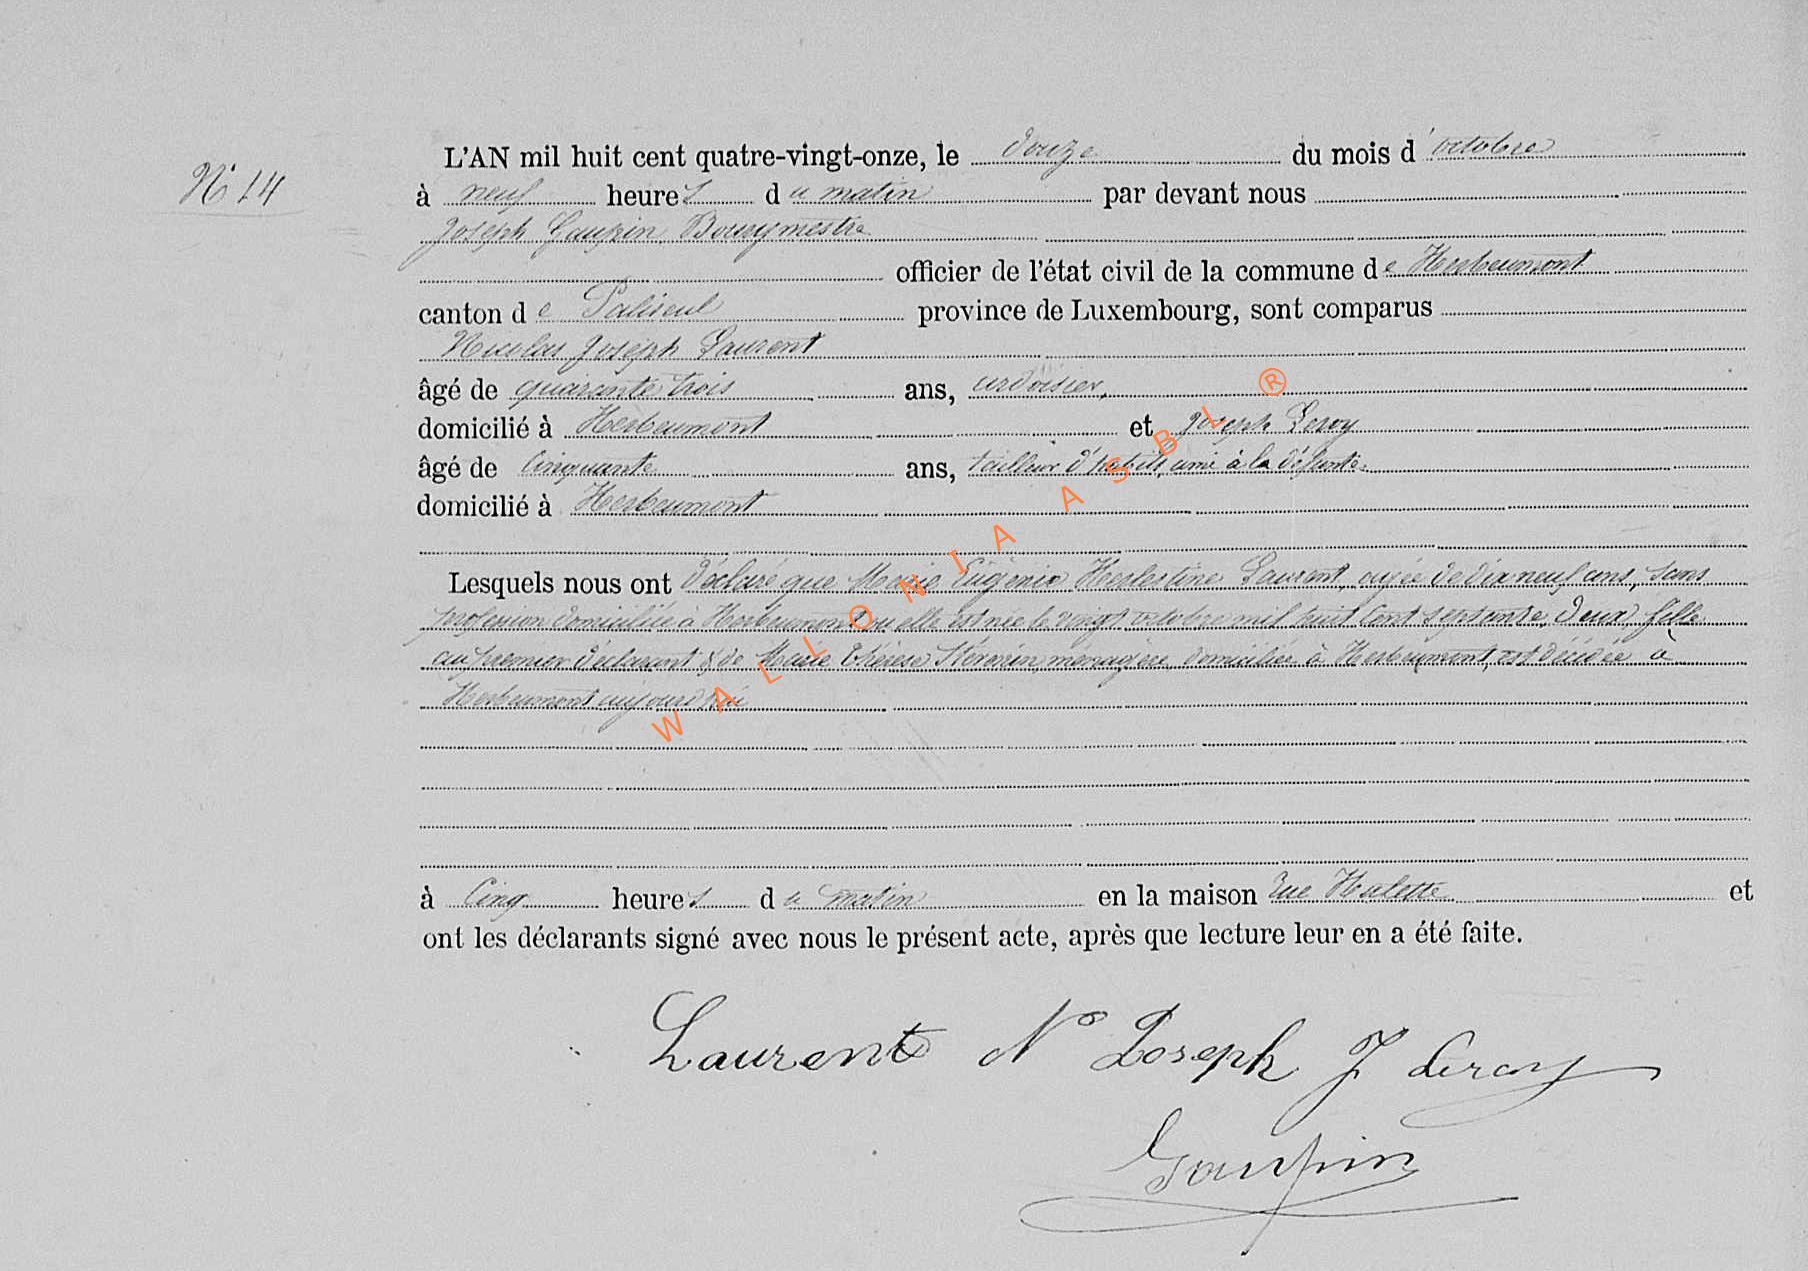 N° 14
L'AN mil huit cent quatre-vingt-onze, le douze du mois d'octobre
à neuf heures du matin par devant nous
Joseph Gaupin, Bourgmestre
officier de l'état civil de la commune de Herbeumont
canton de Paliseul province de Luxembourg, sont comparus
Nicolas Joseph Laurent
âgé de quarante trois ans, ardoisier,
domicilié à Herbeumont et Joseph Leroy
âgé de Cinquante ans, tailleur d'habits, ami à la défunte.
domicilié à Herbeumont
Lesquels nous ont déclaré que Marie Eugénie Laurent, agée de dix neuf ans, sans
profession domiciliée à Herbeumont ou elle est née le vingt octobre mil huit cent septante deux, fille
au premier déclarant & de Marie Thérèse ménagère, domiciliée à Herbeumont, est décédée à
Herbeumont aujourd'hui
à Cinq heures du matin en la maison rue Halette et
ont les déclarants signé avec nous le présent acte, après que lecture leur en a été faite.
Laurent N° Joseph J Leroy
Gaupin
WALLONIA ASBL ®